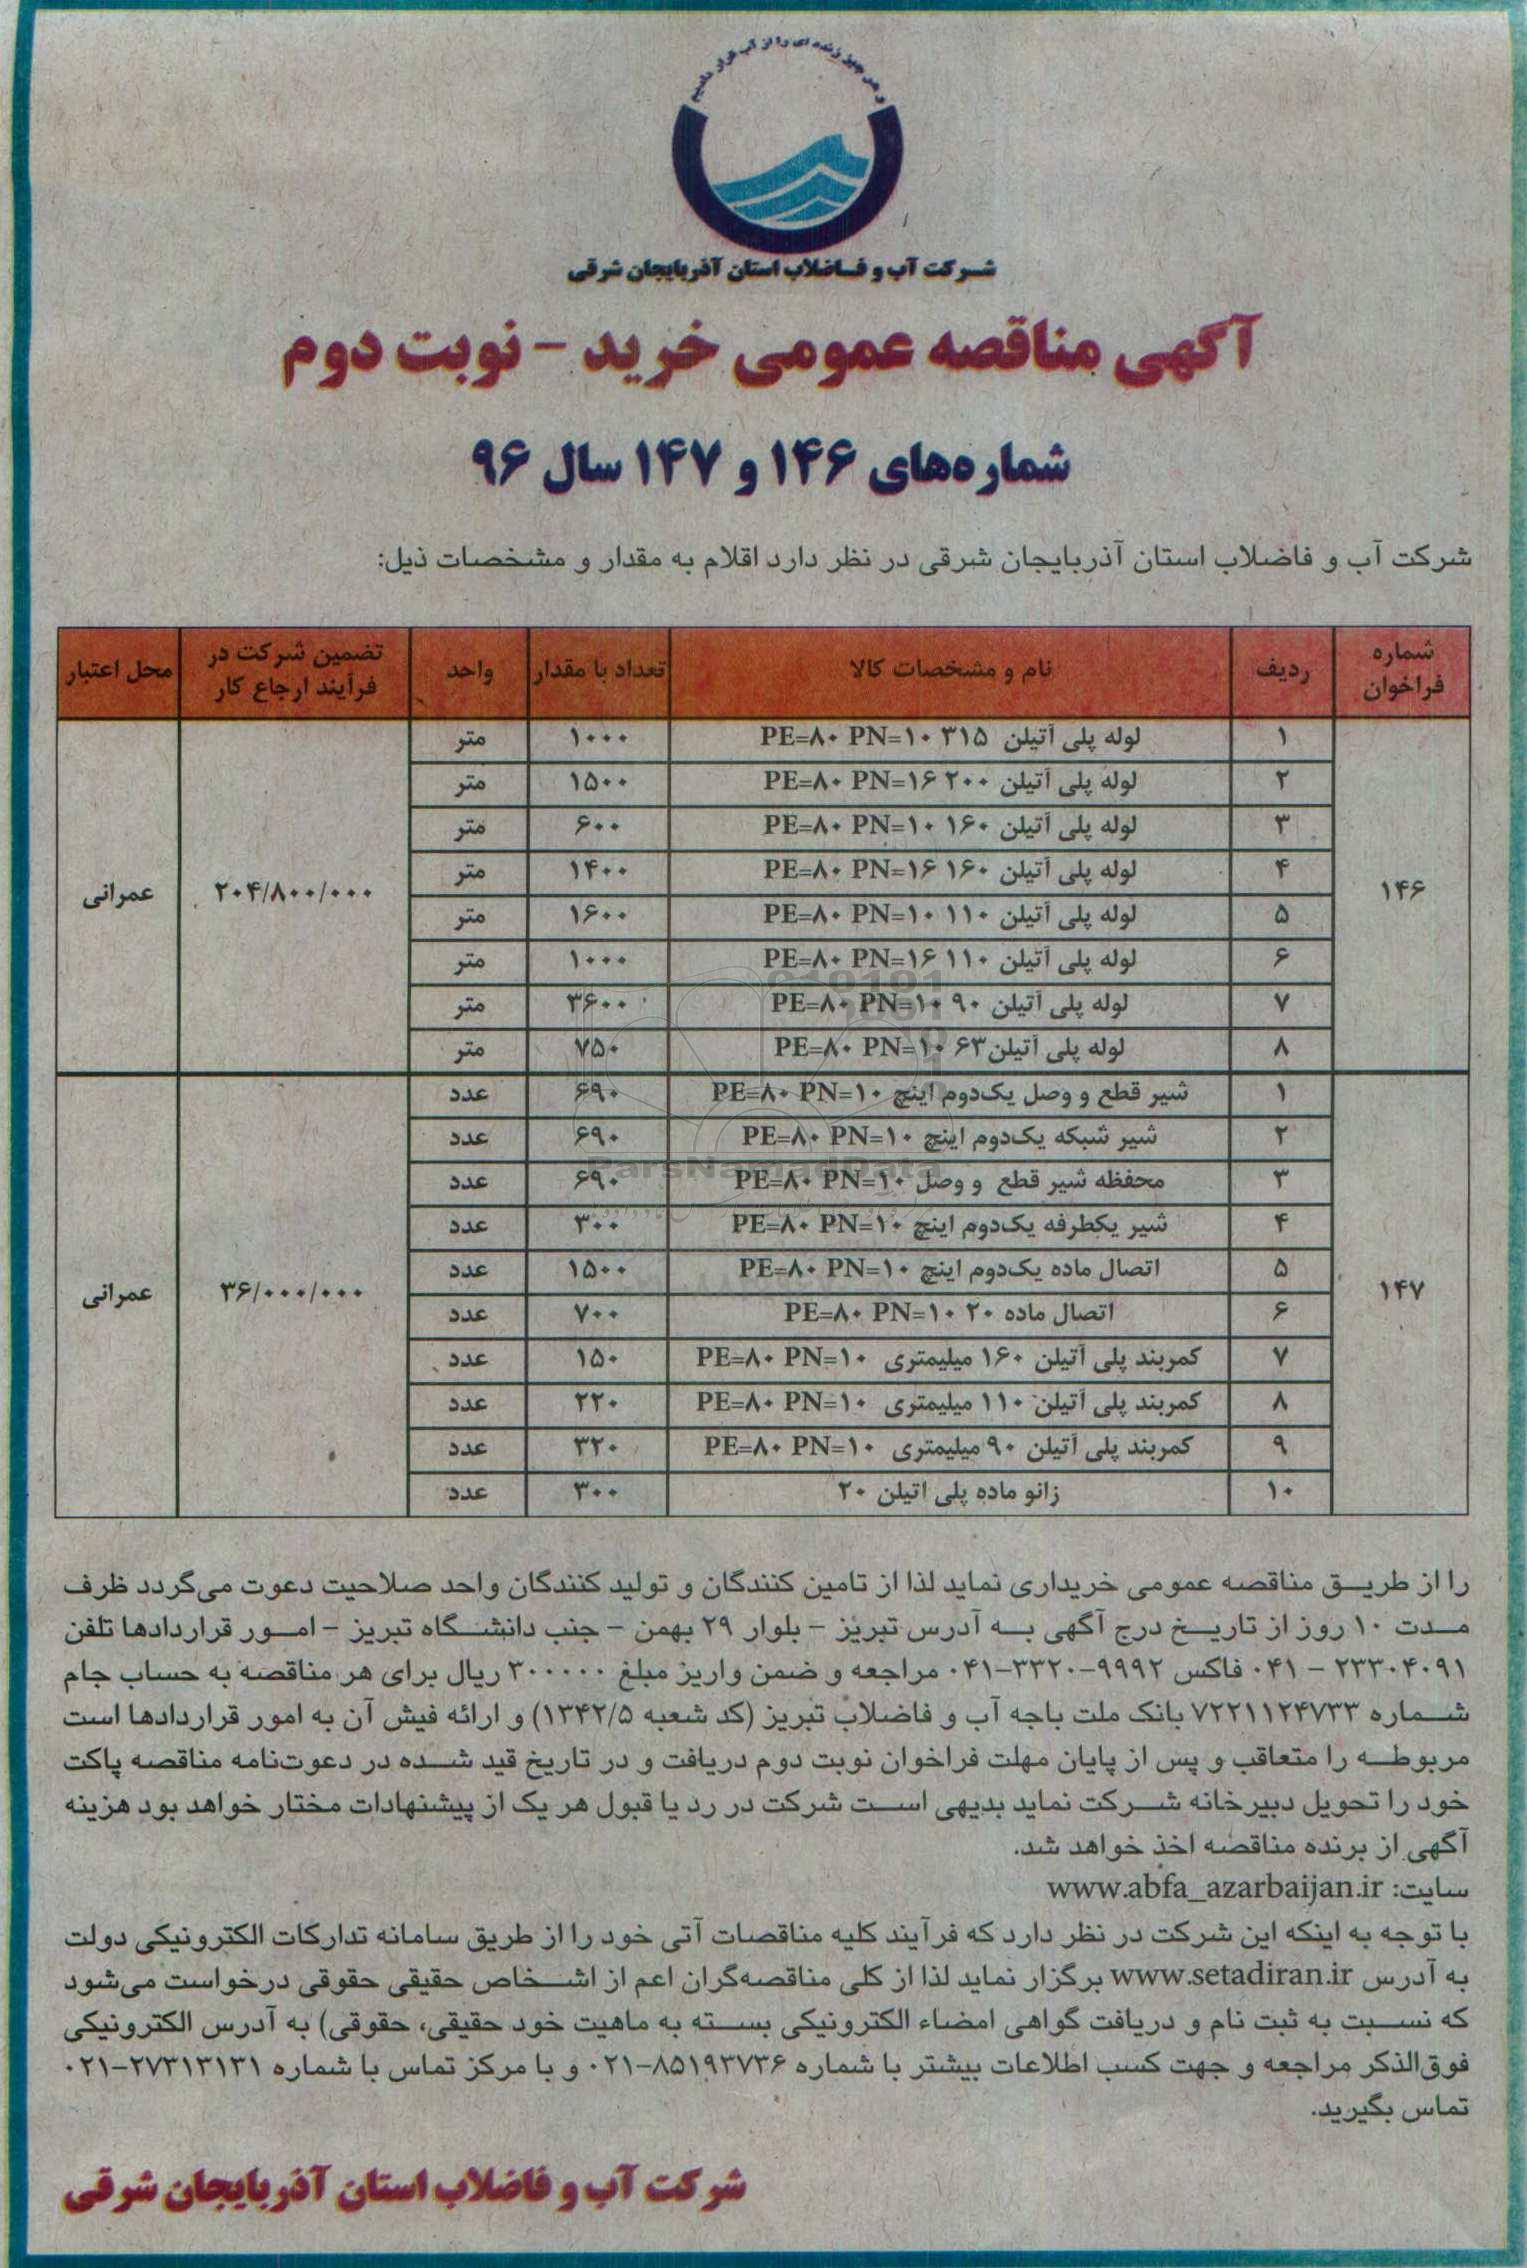 و هر چیز زنده ای را از آب قرار دادیم
شرکت آب و فاضلاب استان آذربایجان شرقی
آگهی مناقصه عمومی خرید - نوبت دوم
شماره‌های ۱۴۶ و ۱۴۷ سال ۹۶
شرکت آب و فاضلاب استان آذربایجان شرقی در نظر دارد اقلام به مقدار و مشخصات ذیل:
شماره فراخوان ردیف نام و مشخصات کالا تعداد با مقدار واحد تضمین شرکت در فرآیند ارجاع کار محل اعتبار
۱۴۶ ۲۰۴/۸۰۰/۰۰۰ عمرانی
۱ لوله پلی آتیلن ۳۱۵ PE=۸۰ PN=۱۰ ۱۰۰۰ متر
۲ لوله پلی آتیلن ۲۰۰ PE=۸۰ PN=۱۶ ۱۵۰۰ متر
۳ لوله پلی آتیلن ۱۶۰ PE=۸۰ PN=۱۰ ۶۰۰ متر
۴ لوله پلی آتیلن ۱۶۰ PE=۸۰ PN=۱۶ ۱۴۰۰ متر
۵ لوله پلی آتیلن ۱۱۰ PE=۸۰ PN=۱۰ ۱۶۰۰ متر
۶ لوله پلی آتیلن ۱۱۰ PE=۸۰ PN=۱۶ ۱۰۰۰ متر
۷ لوله پلی آتیلن ۹۰ PE=۸۰ PN=۱۰ ۳۶۰۰ متر
۸ لوله پلی آتیلن۶۳ PE=۸۰ PN=۱۰ ۷۵۰ متر
۱۴۷ ۳۶/۰۰۰/۰۰۰ عمرانی
۱ شیر قطع و وصل یک‌دوم اینچ PE=۸۰ PN=۱۰ ۶۹۰ عدد
۲ شیر شبکه یک‌دوم اینچ PE=۸۰ PN=۱۰ ۶۹۰ عدد
۳ محفظه شیر قطع و وصل PE=۸۰ PN=۱۰ ۶۹۰ عدد
۴ شیر یکطرفه یک‌دوم اینچ PE=۸۰ PN=۱۰ ۳۰۰ عدد
۵ اتصال ماده یک‌دوم اینچ PE=۸۰ PN=۱۰ ۱۵۰۰ عدد
۶ اتصال ماده ۲۰ PE=۸۰ PN=۱۰ ۷۰۰ عدد
۷ کمربند پلی آتیلن ۱۶۰ میلیمتری PE=۸۰ PN=۱۰ ۱۵۰ عدد
۸ کمربند پلی آتیلن ۱۱۰ میلیمتری PE=۸۰ PN=۱۰ ۲۲۰ عدد
۹ کمربند پلی آتیلن ۹۰ میلیمتری PE=۸۰ PN=۱۰ ۳۲۰ عدد
۱۰ زانو ماده پلی اتیلن ۲۰ ۳۰۰ عدد
ParsNamadData
را از طریق مناقصه عمومی خریداری نماید لذا از تامین کنندگان و تولید کنندگان واحد صلاحیت دعوت می‌گردد ظرف
مدت ۱۰ روز از تاریخ درج آگهی به آدرس تبریز - بلوار ۲۹ بهمن - جنب دانشگاه تبریز - امور قراردادها تلفن
۲۳۳۰۴۰۹۱ - ۰۴۱ فاکس ۹۹۹۲-۳۳۲۰-۰۴۱ مراجعه و ضمن واریز مبلغ ۳۰۰۰۰۰ ریال برای هر مناقصه به حساب جام
شماره ۷۲۲۱۱۲۴۷۳۳ بانک ملت باجه آب و فاضلاب تبریز (کد شعبه ۱۳۴۲/۵) و ارائه فیش آن به امور قراردادها است
مربوطه را متعاقب و پس از پایان مهلت فراخوان نوبت دوم دریافت و در تاریخ قید شده در دعوت‌نامه مناقصه پاکت
خود را تحویل دبیرخانه شرکت نماید بدیهی است شرکت در رد یا قبول هر یک از پیشنهادات مختار خواهد بود هزینه
آگهی از برنده مناقصه اخذ خواهد شد.
سایت: www.abfa_azarbaijan.ir
با توجه به اینکه این شرکت در نظر دارد که فرآیند کلیه مناقصات آتی خود را از طریق سامانه تدارکات الکترونیکی دولت
به آدرس www.setadiran.ir برگزار نماید لذا از کلی مناقصه‌گران اعم از اشخاص حقیقی حقوقی درخواست می‌شود
که نسبت به ثبت نام و دریافت گواهی امضاء الکترونیکی بسته به ماهیت خود حقیقی، حقوقی) به آدرس الکترونیکی
فوق‌الذکر مراجعه و جهت کسب اطلاعات بیشتر با شماره ۸۵۱۹۳۷۳۶-۰۲۱ و با مرکز تماس با شماره ۲۷۳۱۳۱۳۱-۰۲۱
تماس بگیرید.
شرکت آب و فاضلاب استان آذربایجان شرقی